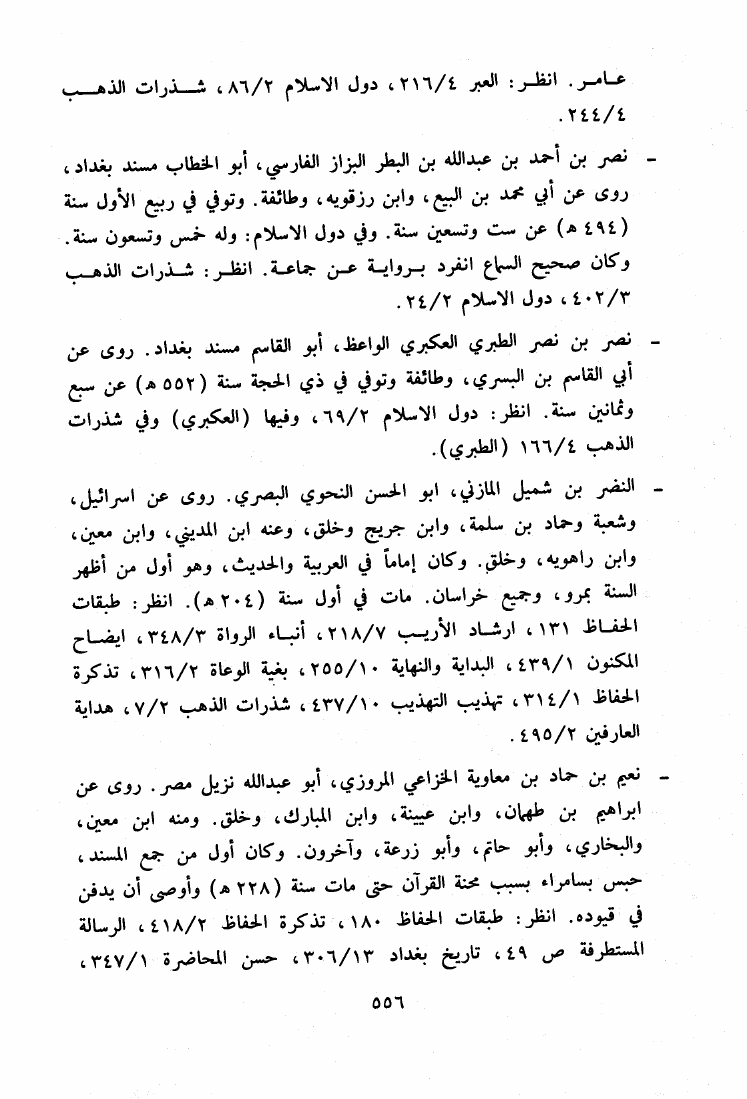 عـامـر. انظـر: العبر ٢١٦/٤، دول الاسلام ٨٦/٢، شـذرات الذهـب
٢٤٤/٤.
ـ نصر بن أحمد بن عبدالله بن البطر البزاز الفارسي، أبو الخطاب مسند بغداد،
روى عن أبي محمد بن البيع، وابن رزقويه، وطائفة. وتوفي في ربيع الأول سنة
(٤٩٤ هـ) عن ست وتسعين سنة. وفي دول الاسلام: وله خمس وتسعون سنة.
وكان صحيح السماع انفرد بـروايـة عـن جماعـة. انظـر: شـذرات الذهـب
٤٠٢/٣، دول الاسلام ٢٤/٢.
ـ نصر بن نصر الطبري العكبري الواعظ، أبو القاسم مسند بغداد. روى عن
أبي القاسم بن البسري، وطائفة وتوفي في ذي الحجة سنة (٥٥٢ هـ) عن سبع
وثمانين سنة. انظر: دول الاسلام ٦٩/٢، وفيها (العكبري) وفي شذرات
الذهب ١٦٦/٤ (الطبري).
ـ النضر بن شميل المازني، ابو الحسن النحوي البصري. روى عن اسرائيل،
وشعبة وحماد بن سلمة، وابن جريج وخلق، وعنه ابن المديني، وابن معين،
وابن راهويه، وخلق. وكان إماماً في العربية والحديث، وهو أول من أظهر
السنة بمرو، وجميع خراسان. مات في أول سنة (٢٠٤ هـ). انظر: طبقات
الحفـاظ ١٣١، ارشـاد الأريـب ٢١٨/٧، أنبـاء الرواة ٣٤٨/٣، ايضـاح
المكنون ٤٣٩/١، البداية والنهاية ٢٥٥/١٠، بغية الوعاة ٣١٦/٢، تذكرة
الحفاظ ٣١٤/١، تهذيب التهذيب ٤٣٧/١٠، شذرات الذهب ٧/٢، هداية
العارفين ٤٩٥/٢.
ـ نعيم بن حماد بن معاوية الخزاعي المروزي، أبو عبدالله نزيل مصر. روى عن
ابراهيم بن طهمان، وابن عيينة، وابن المبارك، وخلق. ومنه ابن معين،
والبخاري، وأبو حاتم، وأبو زرعة، وآخرون. وكان أول من جمع المسند،
حبس بسامراء بسبب محنة القرآن حتى مات سنة (٢٢٨ هـ) وأوصى أن يدفن
في قيوده. انظر: طبقات الحفاظ ١٨٠، تذكرة الحفاظ ٤١٨/٢، الرسالة
المستطرفة ص ٤٩، تاريخ بغداد ٣٠٦/١٣، حسن المحاضرة ٣٤٧/١،
٥٥٦